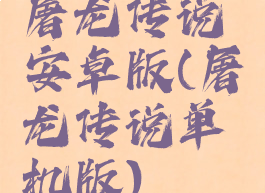 屠龙传说
安卓版(屠
龙传说单
机版)